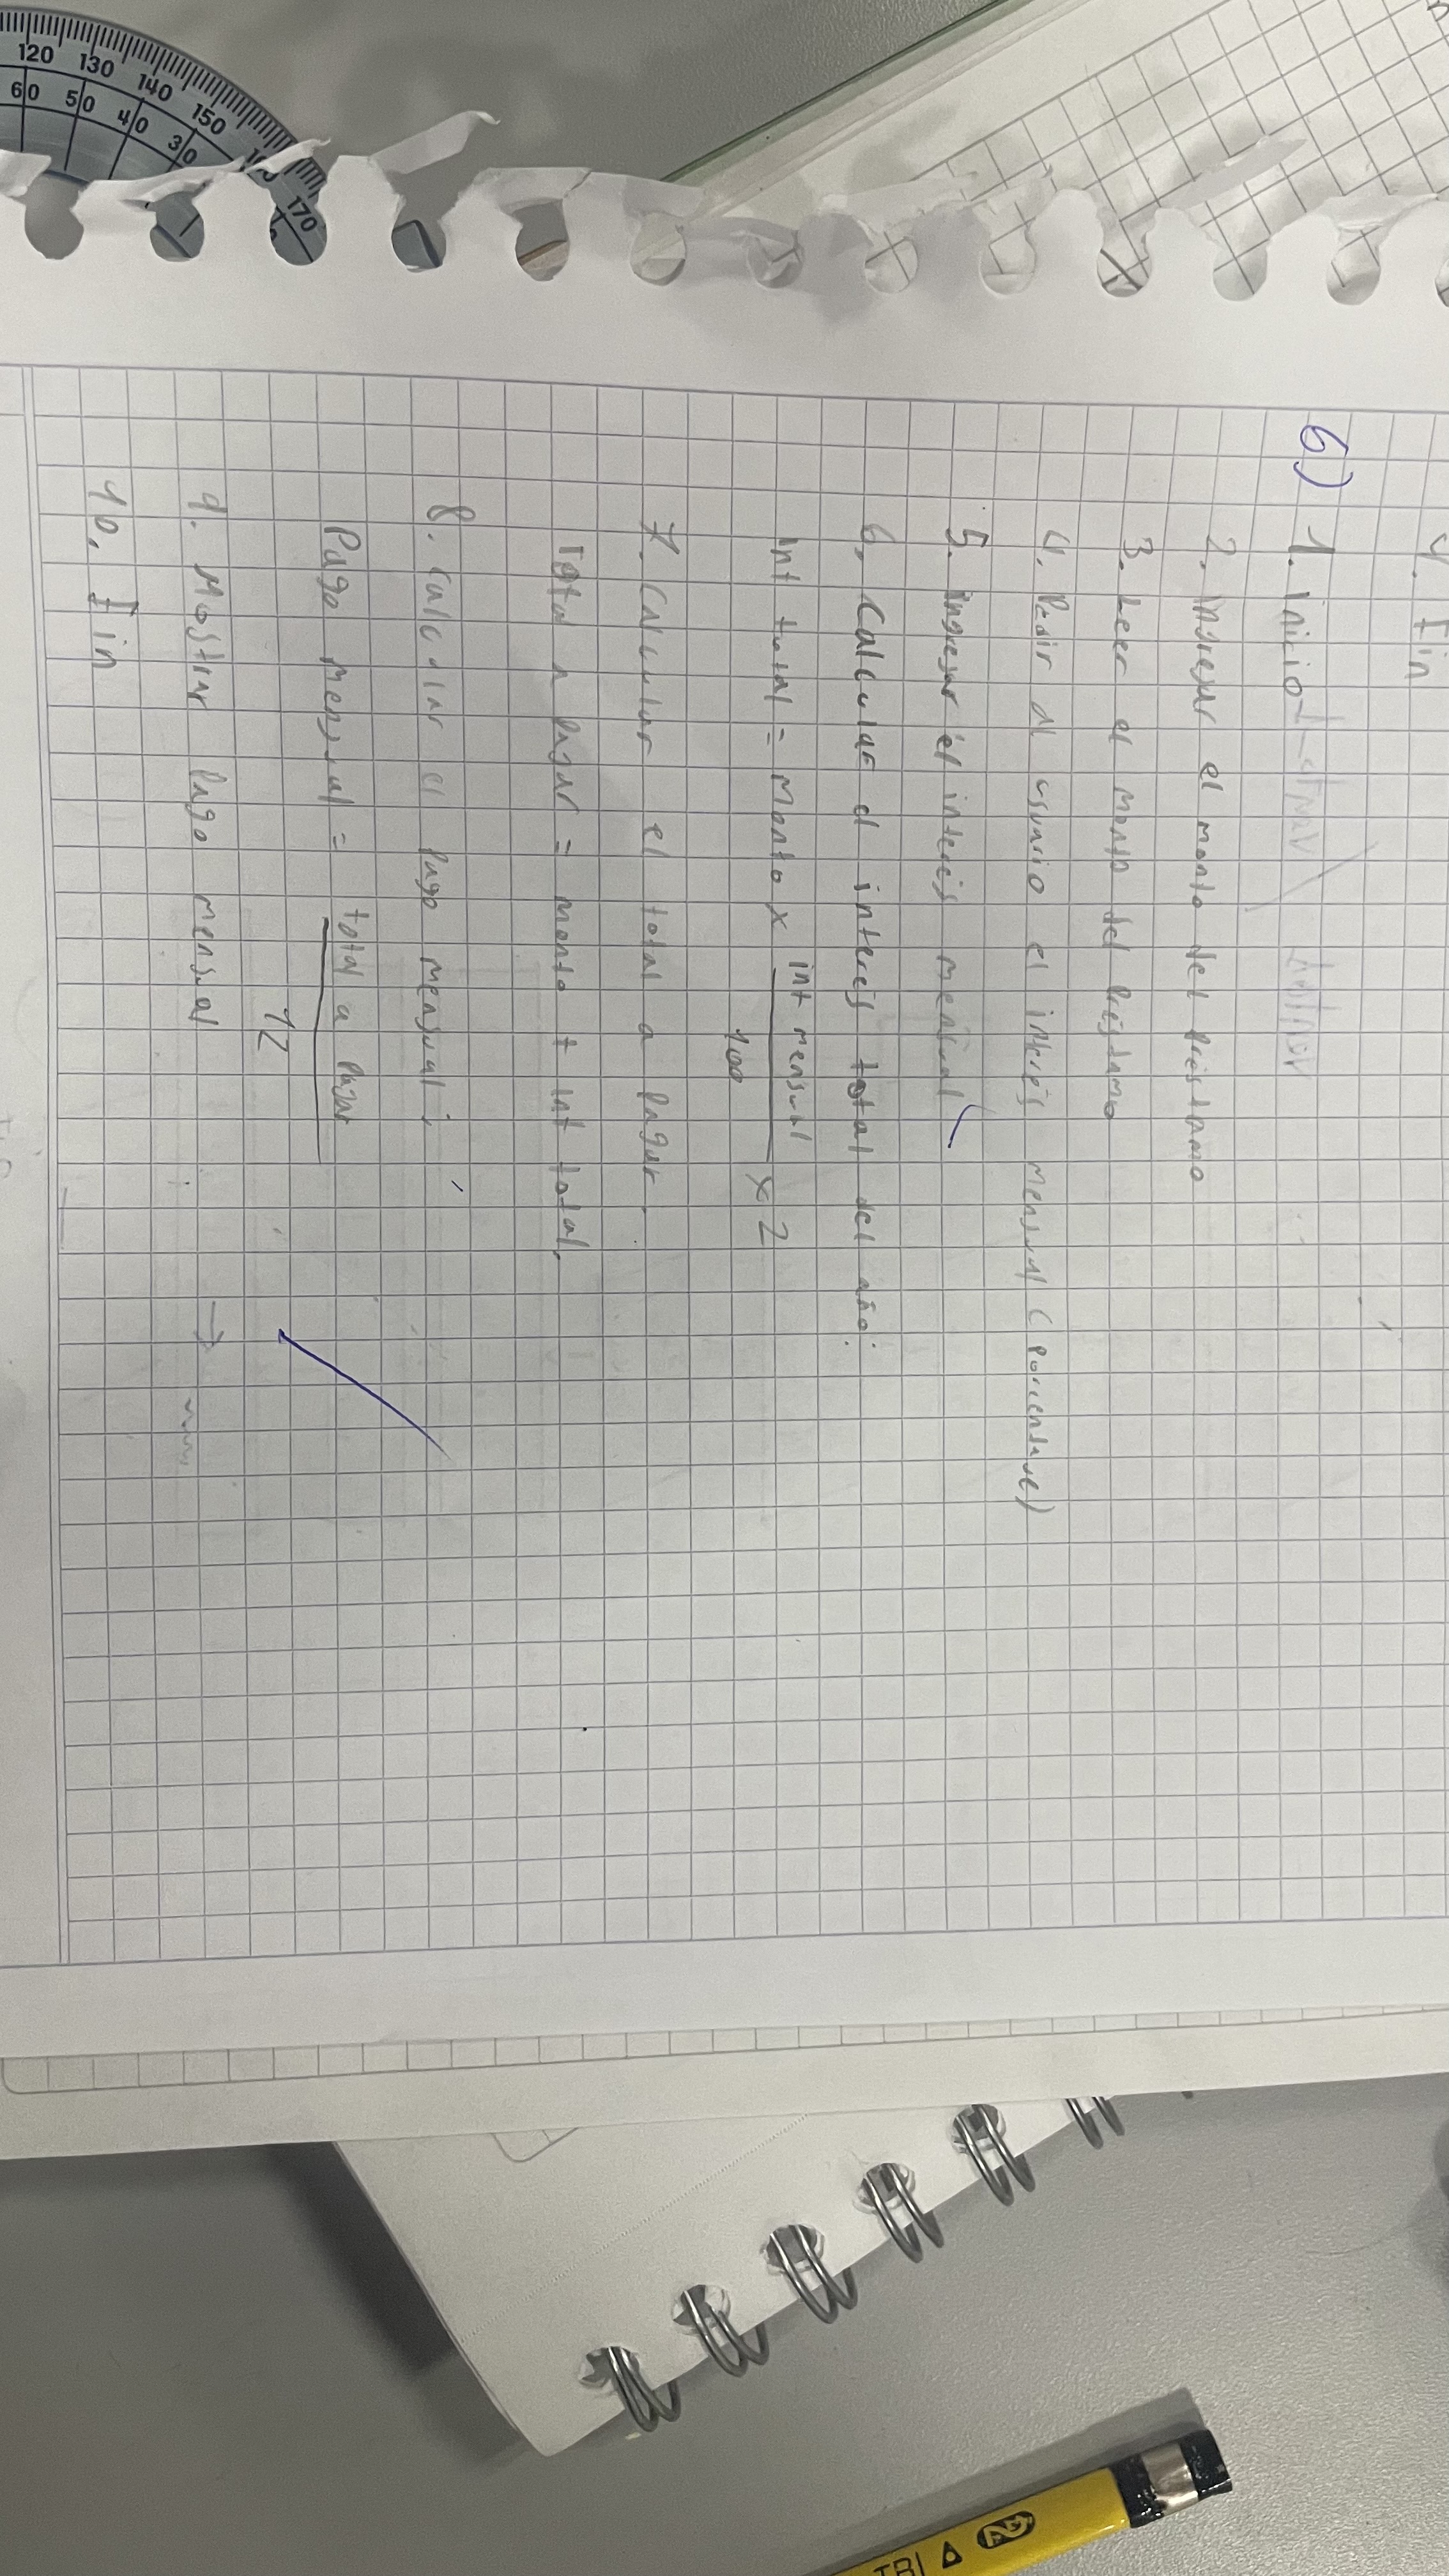 4. Fin
6) 1. inicio
2. ingresar el monto del préstamo
3. Leer el monto del préstamo
4. Pedir al usuario el interés mensual (porcentaje)
5. ingresar el interés mensual
6. Calcular el interés total del año:
int total = Monto x int mensual / 100 x 2
7. Calcular el total a pagar.
Total a pagar = monto + int total.
8. Calcular el pago mensual:
Pago mensual = total a pagar / 12
9. Mostrar pago mensual
10. Fin
120 130 140 150 170
60 50 40 30
TRI 2